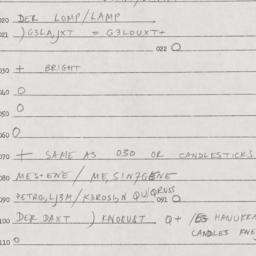 020 DER LOMP/LAMP
)G3LAJXT = G3LOUXT+
022 O
030 + BRIGHT
040 O
050 O
060 O
070 + SAME AS 030 OR CANDLESTICKS
080 MESTENE/
090 PETROLJ3M/ QU/GRUSS
091 O
100 DER DAXT )KNORUBT Q+ HANUKKA
CANDLES
110 O